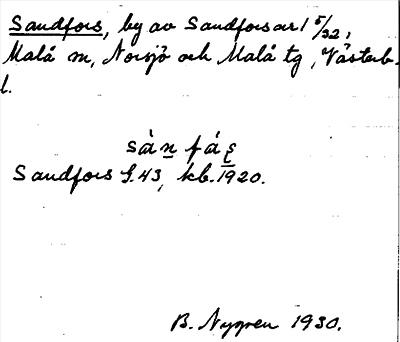 Sandfors, by av Sandfors ar 1 5/32,
Malå sn, Norsjö och Malå tg, Västerb.
l.
sàn fáʂ
Sandfors S. 43, kb. 1920.
B. Nygren 1930.